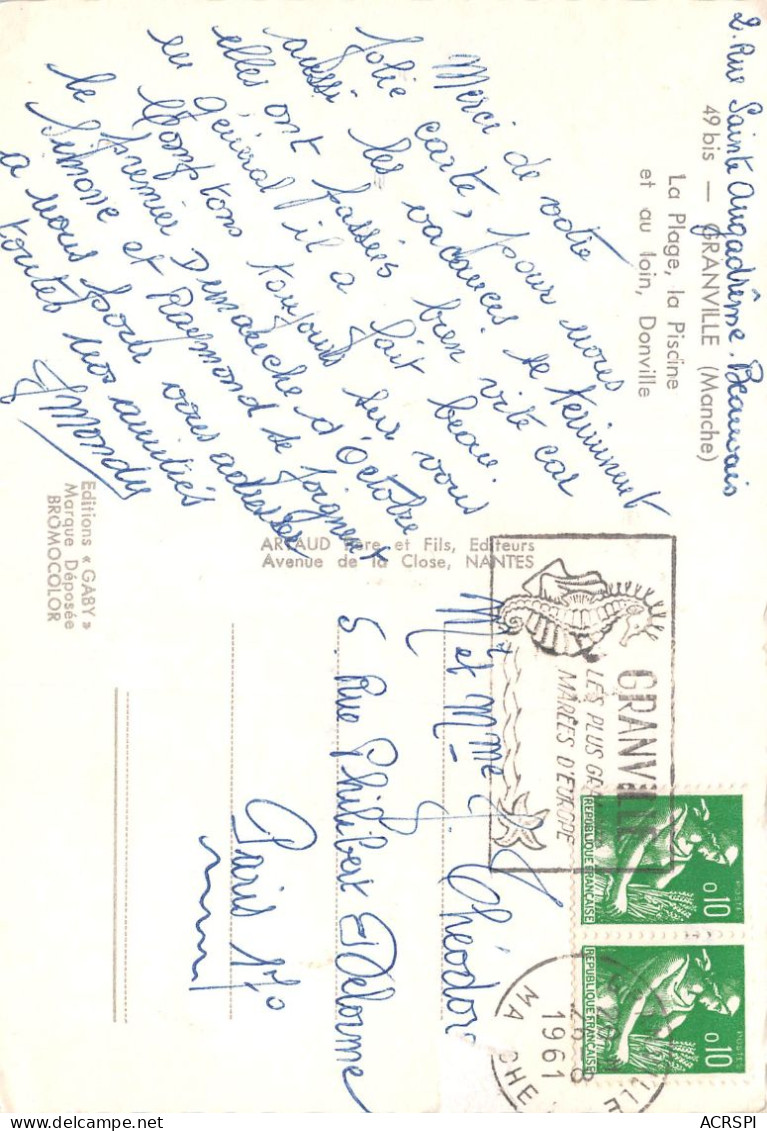 2. Rue Sainte Angadrême. Beauvais
49 bis — GRANVILLE (Manche)
La Plage, la Piscine
et au loin, Donville
Merci de votre
jolie carte, pour nous
aussi les vacances se terminent
elles ont passées bien vite car
en général il a fait beau.
Comptons toujours sur vous
le premier Dimanche d'Octobre
Simone et Raymond se joignent
a nous pour vous adresser
toutes nos amitiés
Mondy
Editions « GABY »
Marque Déposée
BROMOCOLOR
ARTAUD Père et Fils, Editeurs
Avenue de la Close, NANTES
GRANVILLE
LES PLUS
MARÉES D'EUROPE
REPUBLIQUE FRANÇAISE
0,10
POSTES
REPUBLIQUE FRANÇAISE
0,10
POSTES
1961
Mr et Mme J. Théodore
5 Rue Philibert Delorme
Paris 17e
ACRSPI